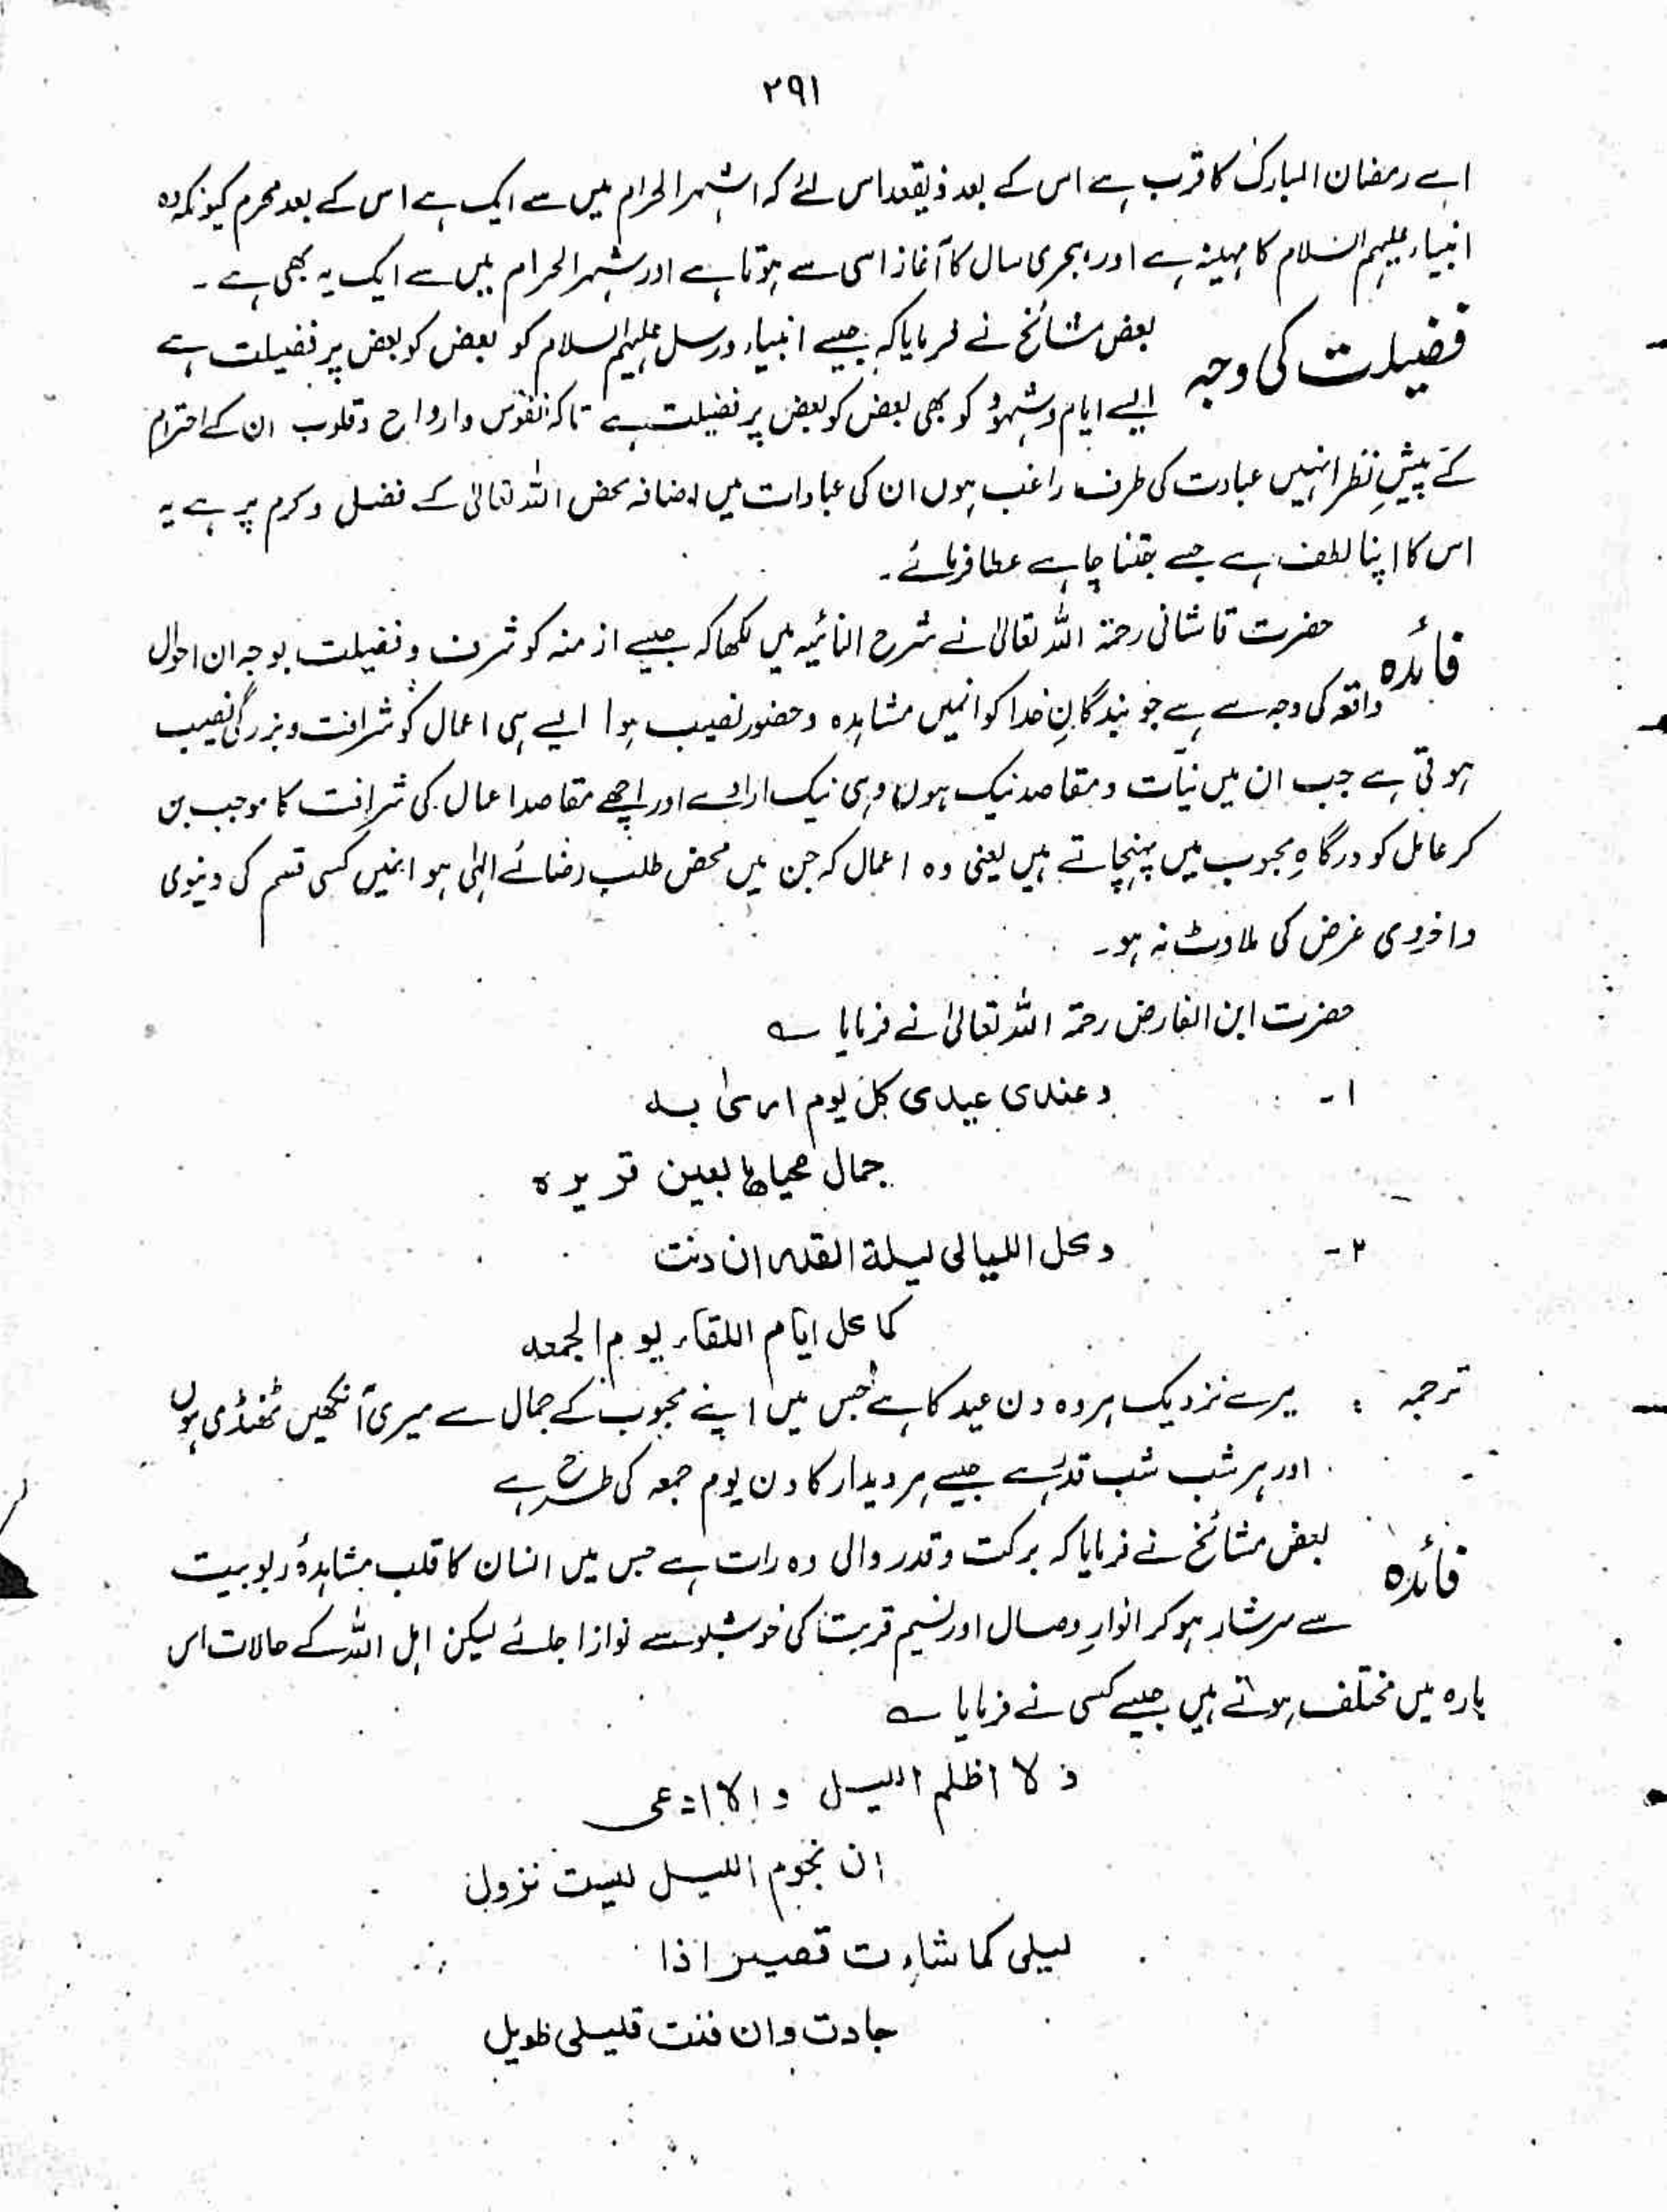 ۲۹۱
اسے رمضان المبارک کا قرب ہے اس کے بعد ذیقعد اس لئے کہ اشہر الحرام میں سے ایک ہے اس کے بعد محرم کیونکہ وہ
انبیاء علیہم السلام کا مہینہ ہے اور ہجری سال کا آغاز اسی سے ہوتا ہے اور شہر الحرام میں سے ایک یہ بھی ہے ۔
فضیلت کی وجہ بعض مشائخ نے فرمایا کہ جیسے انبیاء ورسل علیہم السلام کو بعض کو بعض پر فضیلت ہے
ایسے ایام و شہور کو بھی بعض کو بعض پر فضیلت ہے تاکہ نفوس وارواح وقلوب ان کے احترام
کے پیشِ نظر انہیں عبادت کی طرف راغب ہوں ان کی عبادات میں اضافہ محض اللہ تعالیٰ کے فضل وکرم پر ہے یہ
اس کا اپنا لطف ہے جسے جتنا چاہے عطا فرمائے ۔
فائدہ حضرت قاشانی رحمۃ اللہ تعالیٰ نے شرح التائیہ میں لکھا کہ جیسے ازمنہ کو شرف وفضیلت بوجہ ان احوال
واقعہ کی وجہ سے ہے جو بندگانِ خدا کو انمیں مشاہدہ وحضور نصیب ہوا ایسے ہی اعمال کو شرافت وبزرگی نصیب
ہوتی ہے جب ان میں نیّات ومقاصد نیک ہوں وہی نیک ارادے اور اچھے مقاصد اعمال کی شرافت کا موجب بن
کر عامل کو درگاہِ محبوب میں پہنچاتے ہیں یعنی وہ اعمال کہ جن میں محض طلب رضائے الٰہی ہو انمیں کسی قسم کی دنیوی
واخروی غرض کی ملاوٹ نہ ہو۔
حضرت ابن الفارض رحمۃ اللہ تعالیٰ نے فرمایا ؎
۱- وعندی عیدی کل یوم اریٰ بہ
جمال محیاھا بعین قریرۃ
۲- وکل اللیالی لیلۃ القدر ان دنت
کما کل ایّام اللقاء یوم الجمعہ
ترجمہ : میرے نزدیک ہر وہ دن عید کا ہے جس میں اپنے محبوب کے جمال سے میری آنکھیں ٹھنڈی ہوں
اور ہر شب شب قدر ہے جیسے ہر دیدار کا دن یوم جمعہ کی طرح ہے
فائدہ بعض مشائخ نے فرمایا کہ برکت وقدر والی وہ رات ہے جس میں انسان کا قلب مشاہدۂ ربوبیت
سے سرشار ہو کر انوارِ وصال اور نسیم قربت کی خوشبو سے نوازا جائے لیکن اہل اللہ کے حالات اس
بارہ میں مختلف ہوتے ہیں جیسے کسی نے فرمایا ؎
لا اظلم اللیل ولا ادعی
ان نجوم اللیل لیست نزول
لیلی کما شاءت قصیر اذا
جادت وان فنت قلیلی طویل